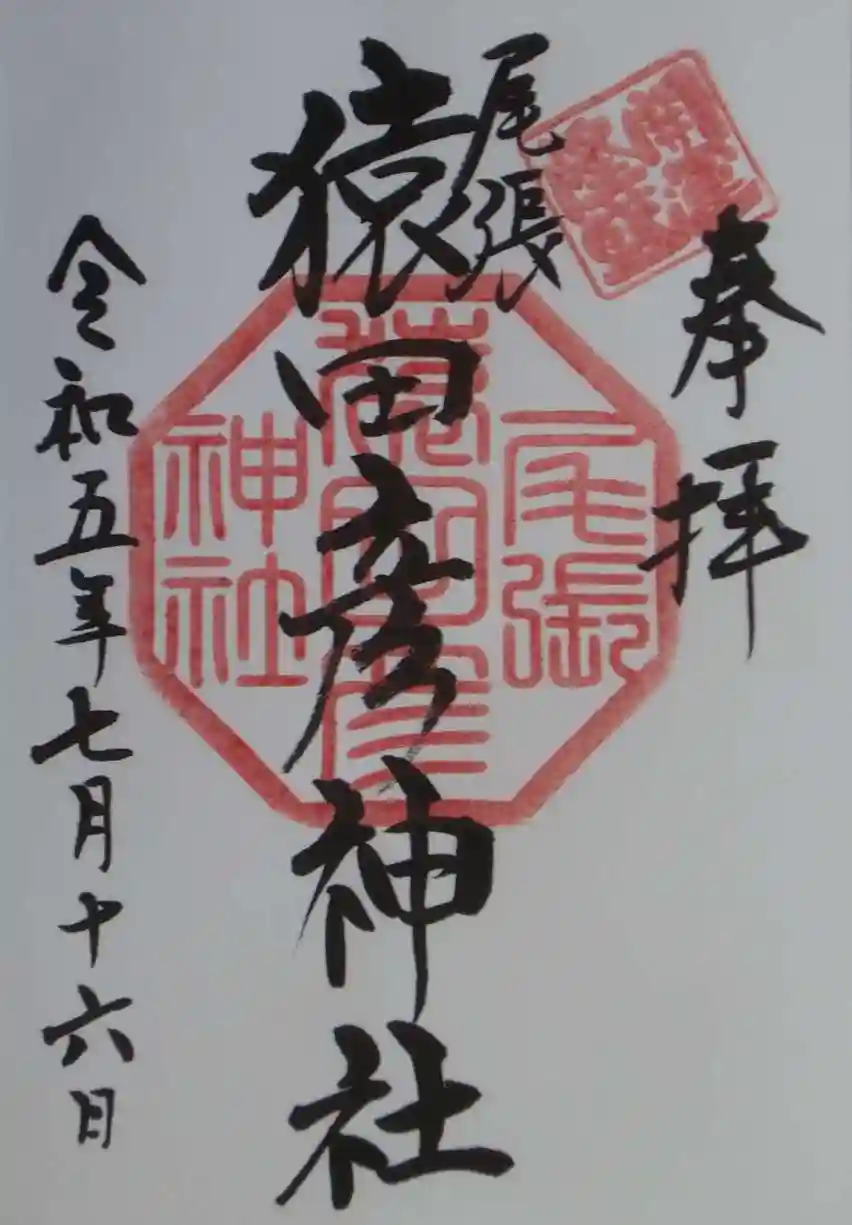 奉拝
尾張
猿田彦神社
尾張
猿田彦
神社
令和五年七月十六日